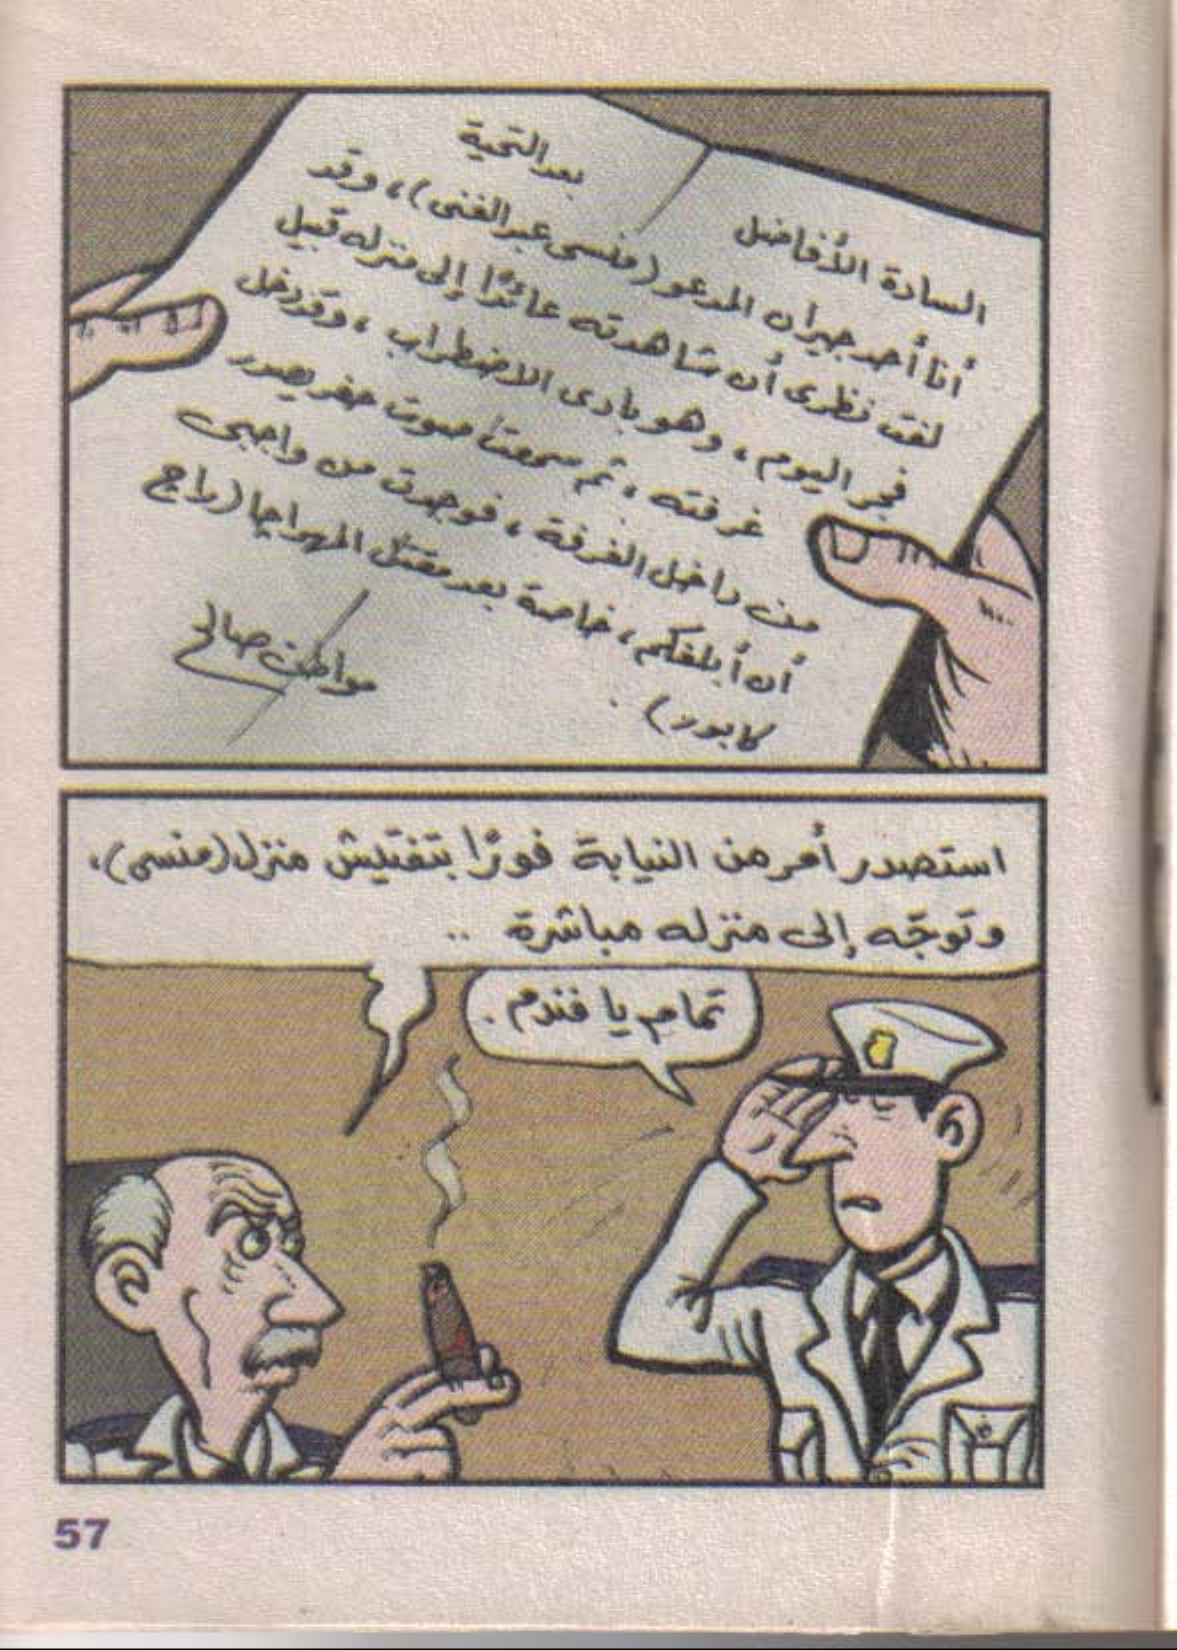 السادة الأفاضل
بعد التحية
أنا أحد جيران المدعو (منسى عبد الغنى)، وقد
لفت نظرى أن شاهدته عائدًا إلى منزله قبيل
فجر اليوم، وهو بادى الاضطراب، وقد دخل
غرفته، ثم سمعت صوت حفر يصدر
من داخل الغرفة، فوجدت من واجبى
أن أبلغكم، خاصة بعد مقتل المهراجا (راج
كابور).
مواطن صالح
استصدر أمر من النيابة فورًا بتفتيش منزل (منسى)،
وتوجّه إلى منزله مباشرة ..
تمام يا فندم.
57